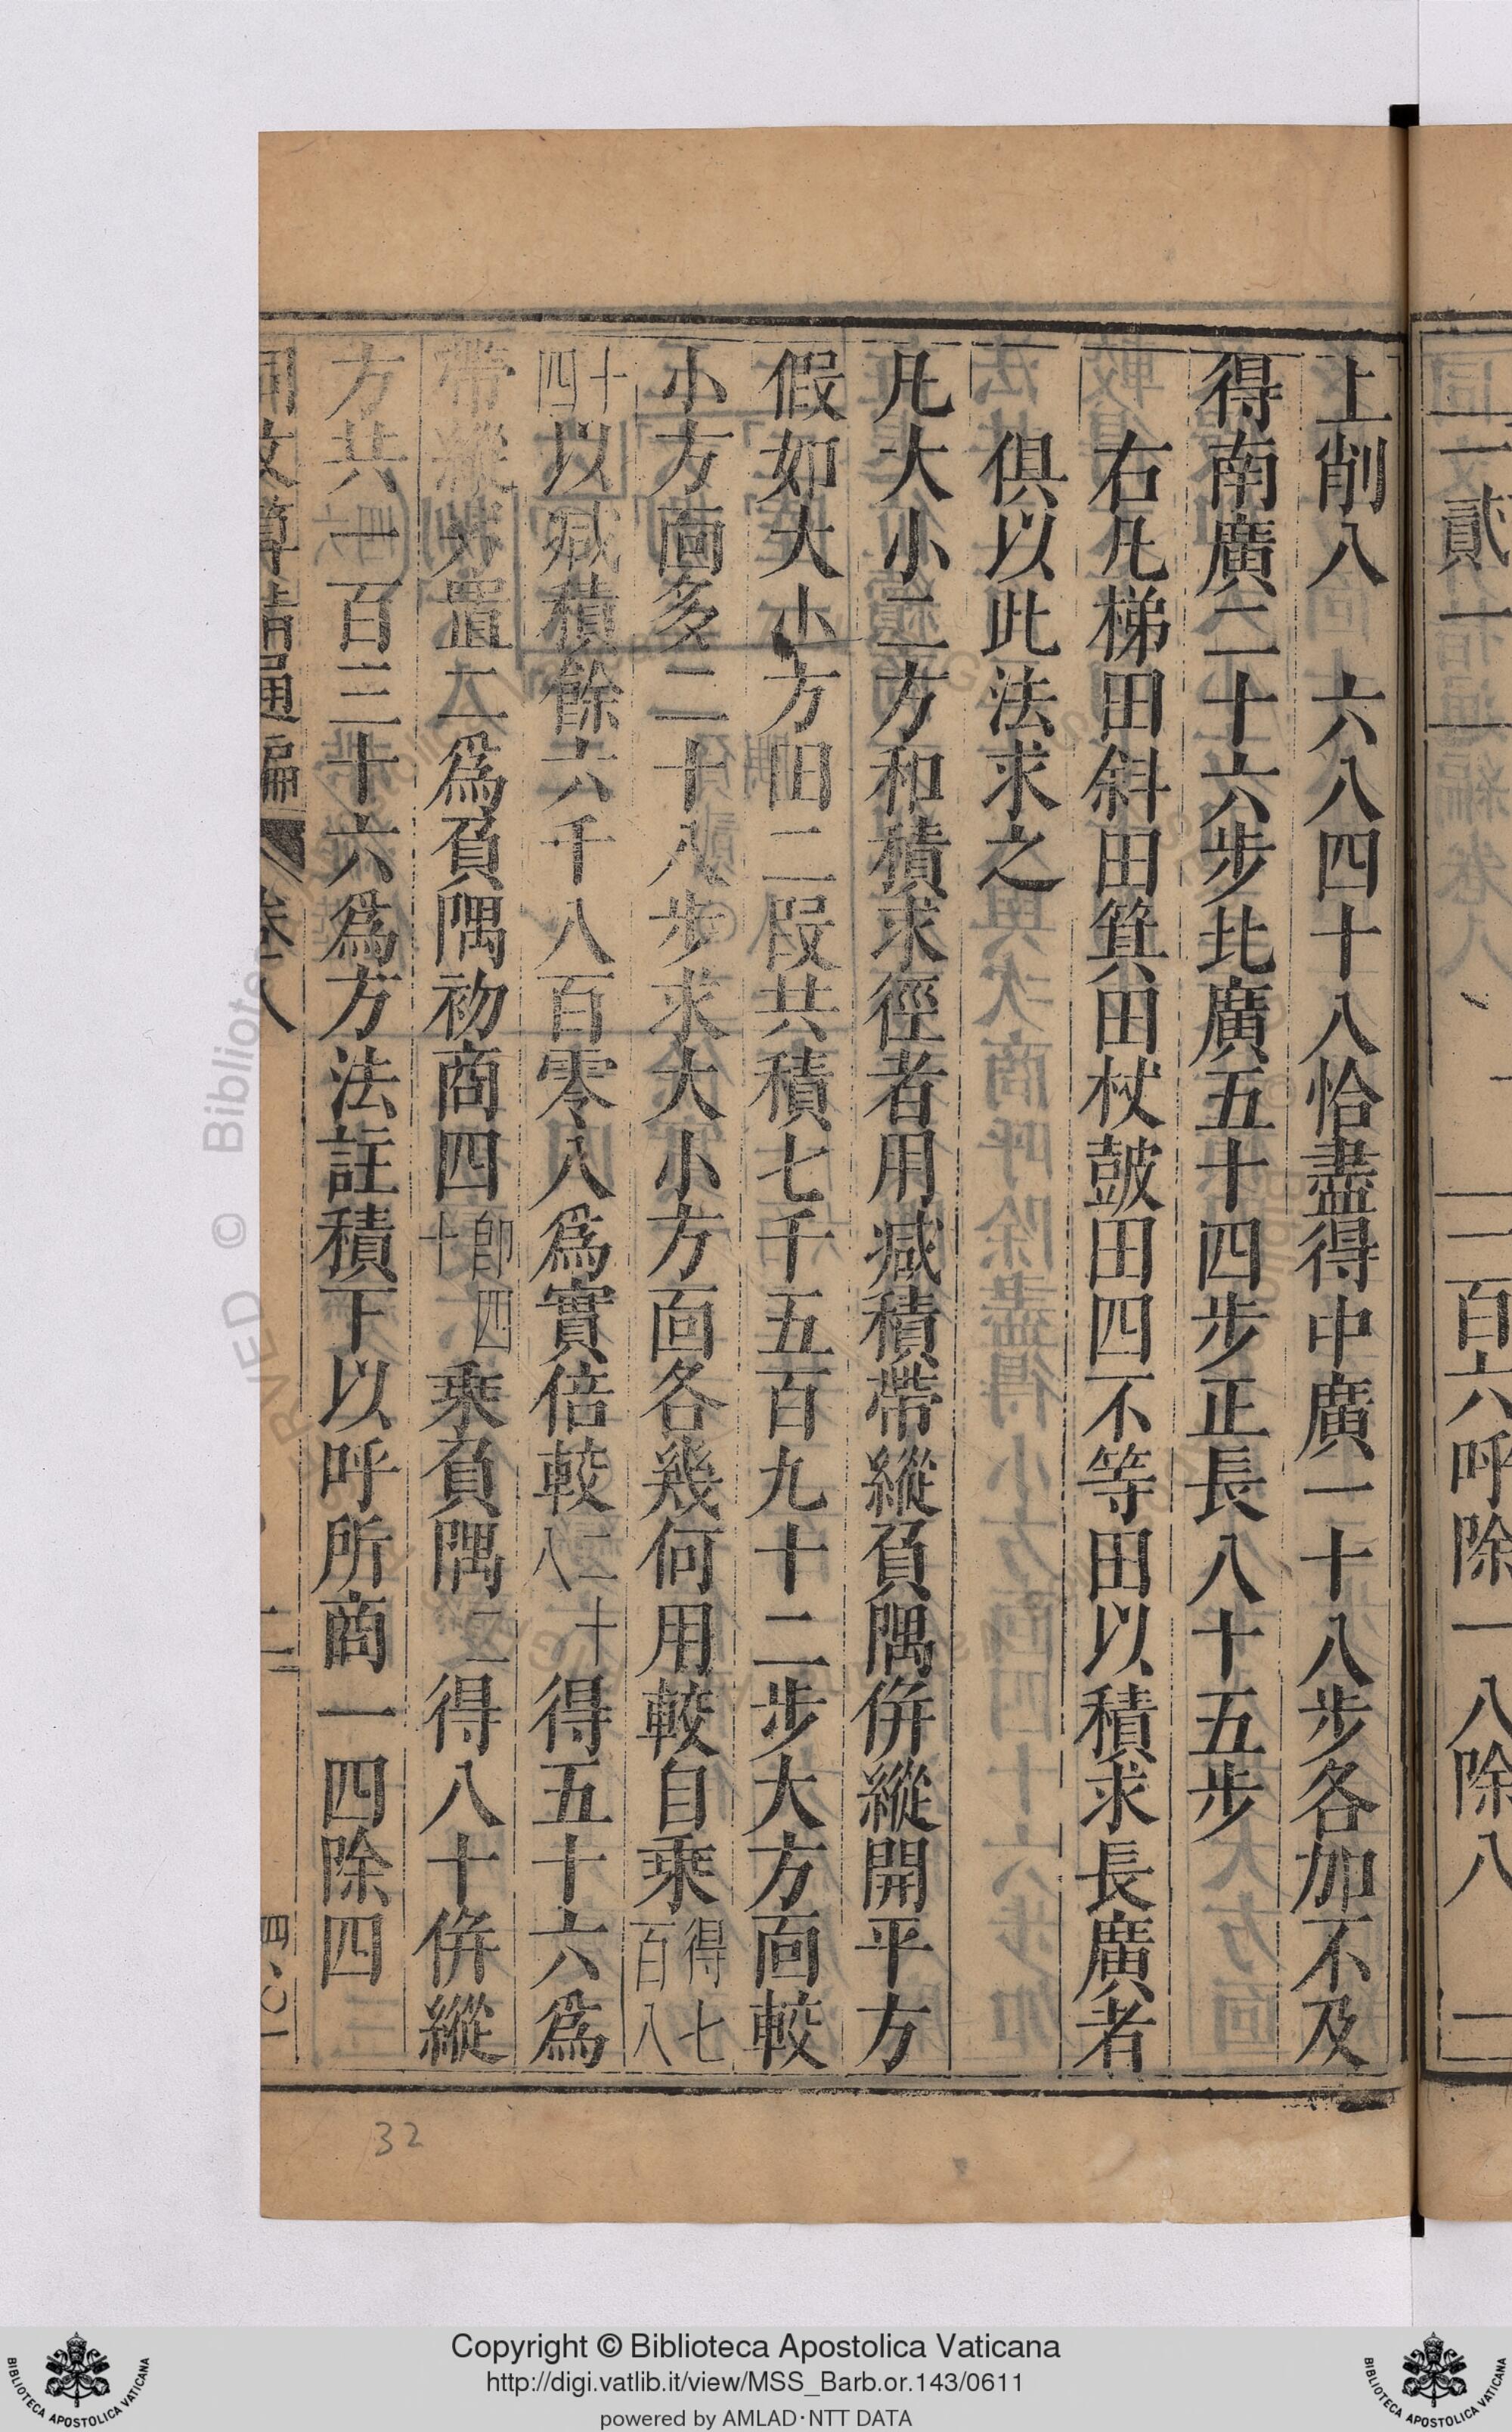 上削八　六八四十八恰盡得中廣一十八步各加不及
得南廣二十六步北廣五十四步正長八十五步
右凡梯田斜田箕田杖鼓田四不等田以積求長廣者
俱以此法求之
凡大小二方和積求徑者用減積帶縱負隅併縱開平方
假如大小方田二段共積七千五百九十二步大方面較
小方面多二十八步求大小方面各幾何用較自乘得七百八
十四以減積餘六千八百零八爲實倍較二十八得五十六爲
帶縱另置二爲負隅初商四卽四十乘負隅二得八十併縱
方共一百三十六爲方法註積下以呼所商一四除四
同文算指通編　卷八
32
Copyright © Biblioteca Apostolica Vaticana
http://digi.vatlib.it/view/MSS_Barb.or.143/0611
powered by AMLAD·NTT DATA